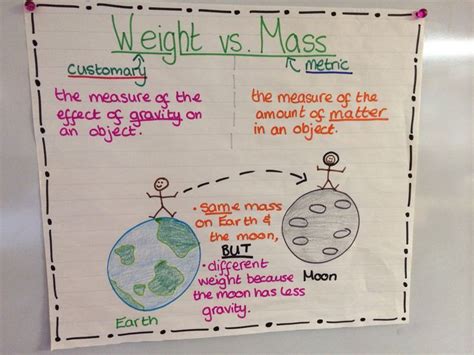 Weight vs. Mass
customary
metric
the measure of the
effect of gravity on
an object.
the measure of the
amount of matter
in an object.
• same mass
on Earth &
the moon,
BUT
• different
weight because
the moon has less
gravity.
Earth
Moon